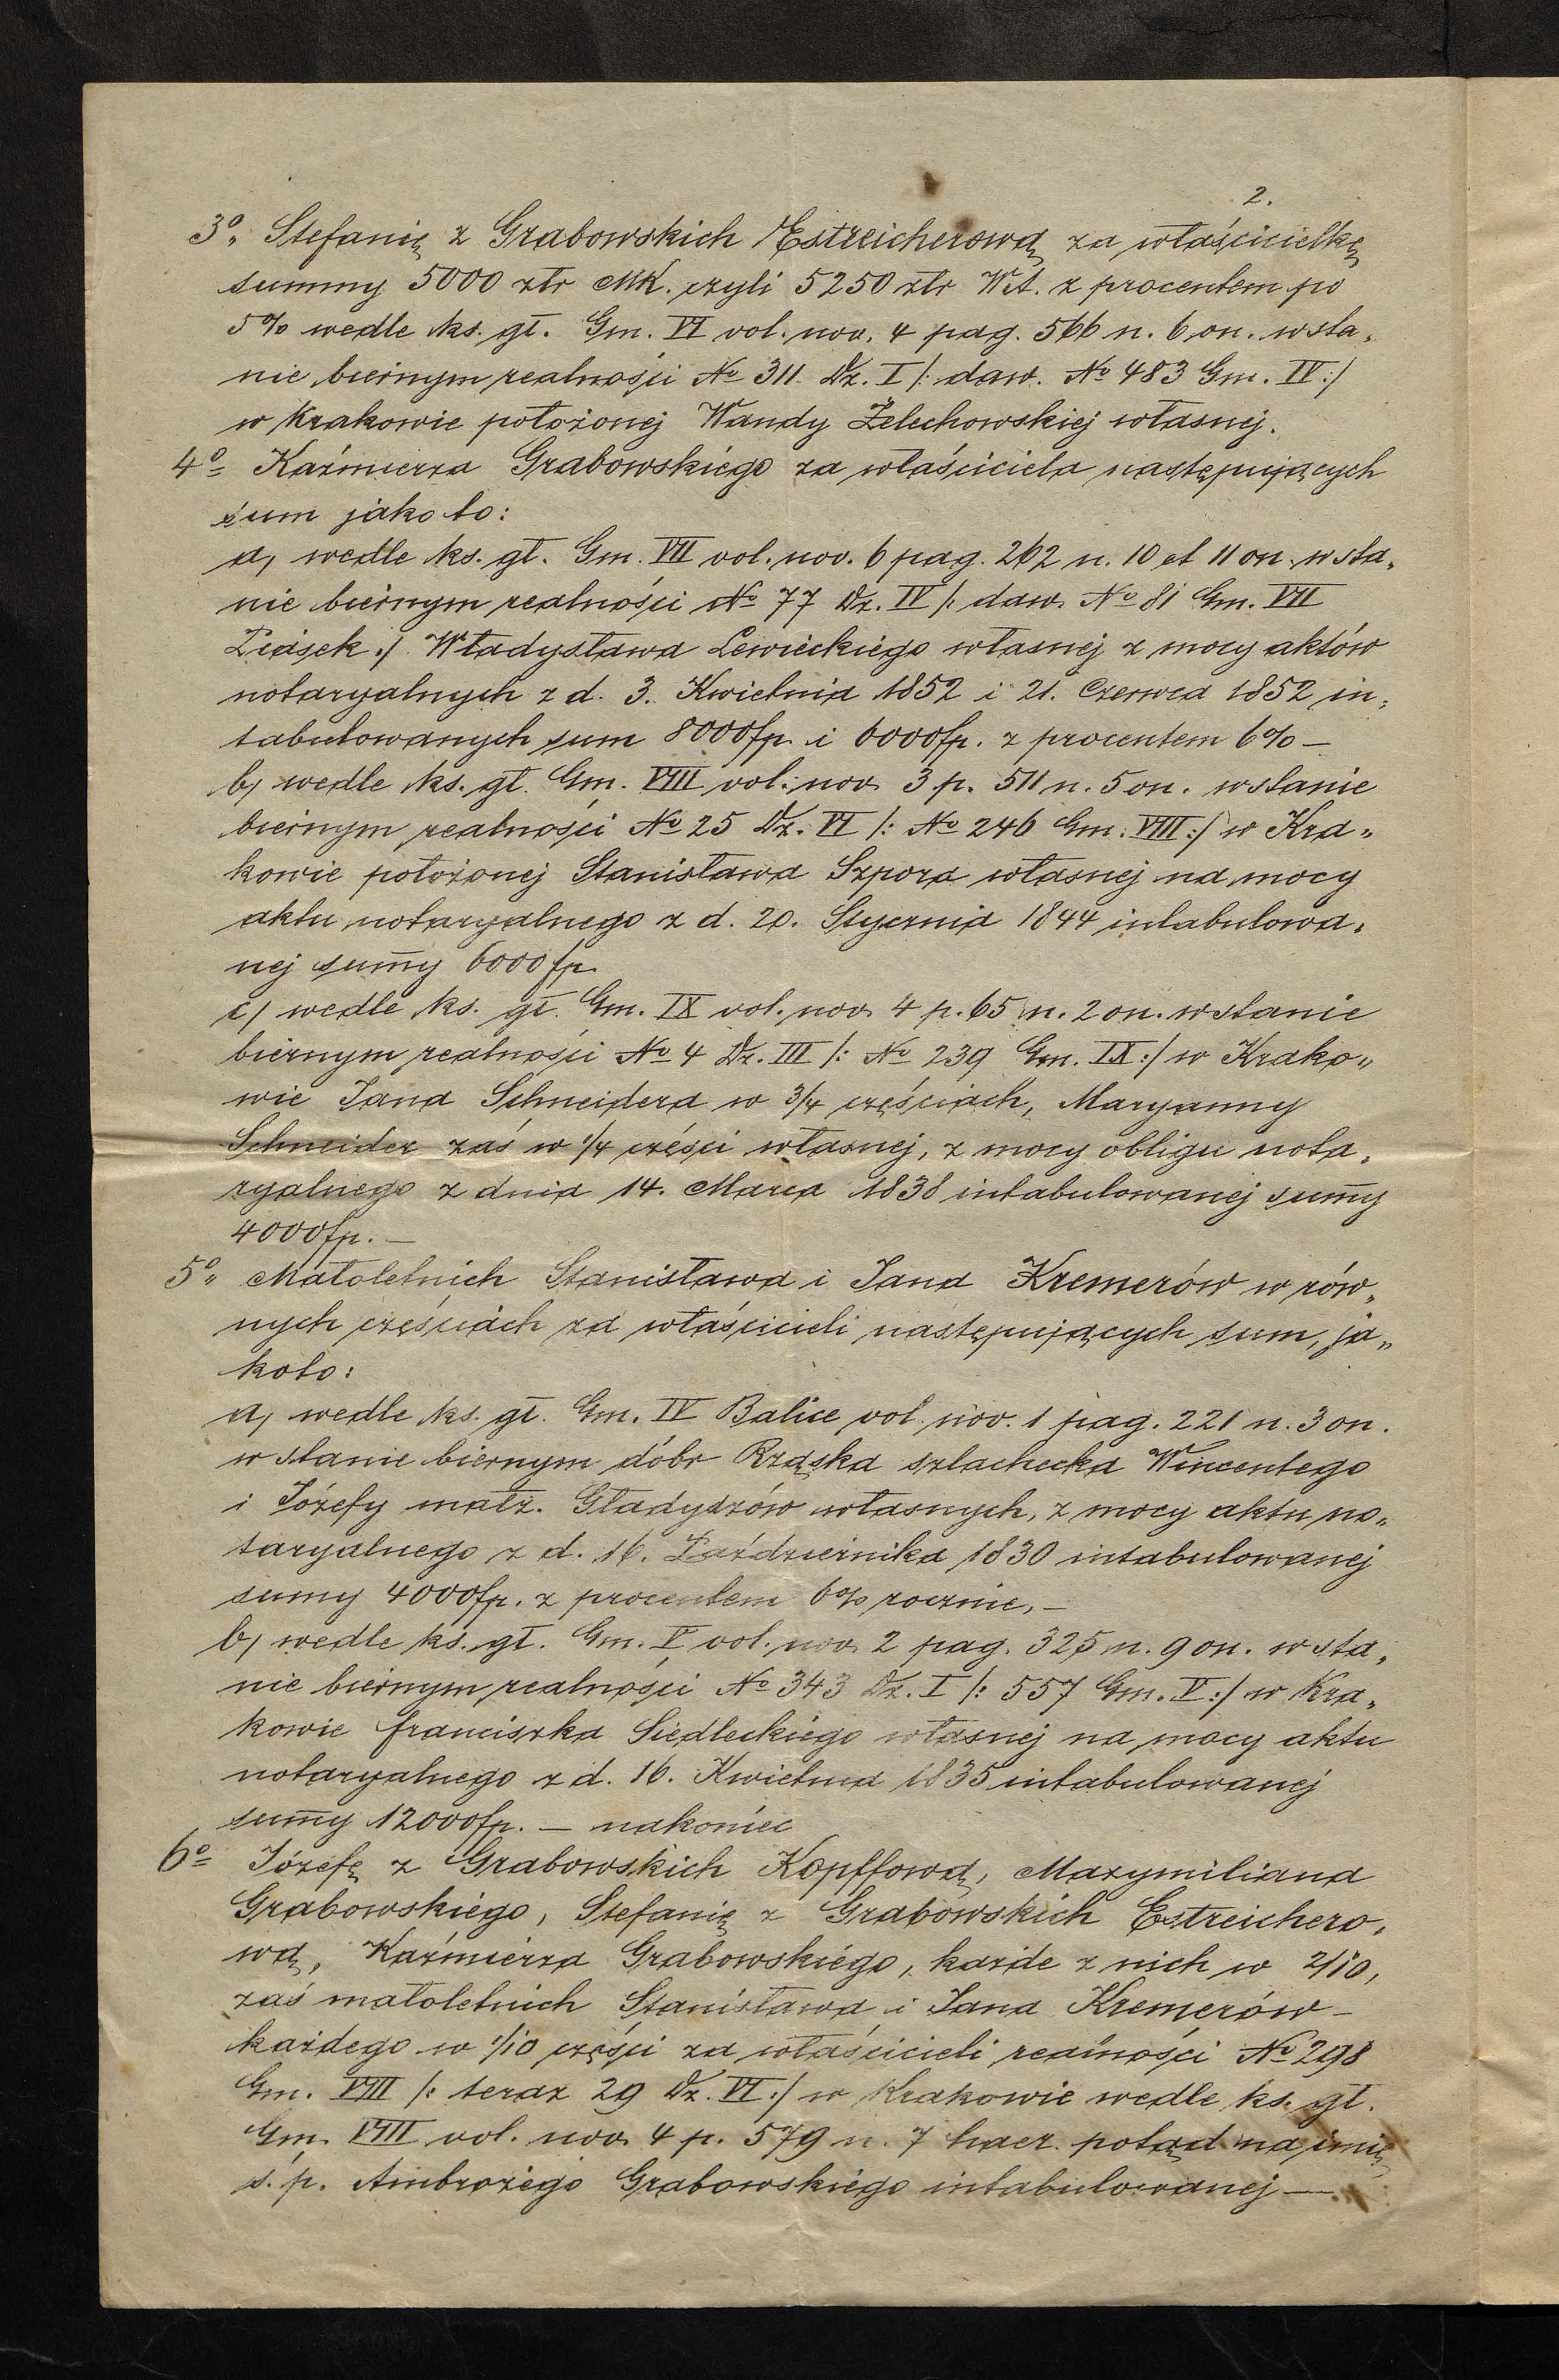 2.
3º„ Stefanię z Grabowskich Estreicherową za właścicielkę
summy 5000 złr MK. czyli 5250 złr W.A. z procentem po
5% wedle ks. gł. Gm. VI vol. nov. 4 pag. 566 n. 6 on. w sta„
nie biernym realności № 311 Dz. I /: daw. № 483 Gm. IV :/
w Krakowie położonej Wandy Żelechowskiej własnej.
4º Kaźmierza Grabowskiego za właściciela następujących
sum jako to:
a, wedle ks. gł. Gm. VII vol. nov. 6 pag. 262 n. 10 et 11 on. w sta„
nie biernym realności № 77 Dz. IV /: daw. № 81 Gm. VII
Piasek :/ Władysława Lewickiego własnej z mocy aktów
notaryalnych z d. 3. Kwietnia 1852 i 21. Czerwca 1852 in„
tabulowanych sum 8000 fp. i 6000 fp. z procentem 6% —
b, wedle ks. gł. Gm. VIII vol. nov. 3 p. 511 n. 5 on. w stanie
biernym realności № 25 Dz. VI /: № 246 Gm. VIII :/ w Kra„
kowie położonej Stanisława Szpora własnej na mocy
aktu notaryalnego z d. 20. Stycznia 1844 intabulowa„
nej sum̅y 6000 fp.
c/ wedle ks. gł. Gm. IX vol. nov. 4 p. 65 n. 2 on. w stanie
biernym realności № 4 Dz. III /: № 239 Gm. IX :/ w Krako„
wie Jana Schneidera w 3/4 częściach, Maryanny
Schneider zaś w 1/4 części własnej, z mocy obligu nota„
ryalnego z dnia 14. Marca 1838 intabulowanej sum̅y
4000 fp. —
5º„ Małoletnich Stanisława i Jana Kremerów w rów„
nych częściach za właścicieli następujących sum, ja„
koto:
a, wedle ks. gł. Gm. IV Balice vol. nov. 1 pag. 221 n. 3 on.
w stanie biernym dóbr Rząska szlachecka Wincentego
i Józefy małż. Gładyszów własnych, z mocy aktu no„
taryalnego z d. 16. Października 1830 intabulowanej
sumy 4000 fp. z procentem 6% rocznie, —
b, wedle ks. gł. Gm. V vol. nov. 2 pag. 325 n. 9 on. w sta„
nie biernym realności № 343 Dz. I /: 557 Gm. V :/ w Kra„
kowie franciszka Siedleckiego własnej na mocy aktu
notaryalnego z d. 16. Kwietnia 1835 intabulowanej
sum̅y 12000 fp. — nakoniec
6º Józefę z Grabowskich Kopffową, Maxymiliana
Grabowskiego, Stefanię z Grabowskich Estreichero„
wą, Kaźmierza Grabowskiego, każde z nich w 2/10,
zaś małoletnich Stanisława i Jana Kremerów —
każdego w 1/10 części za właścicieli realności № 298
Gm. VIII /: teraz 29 Dz. VI :/ w Krakowie wedle ks. gł.
Gm. VIII vol. nov. 4 p. 579 n. 7 haer. potąd na imię
ś. p. Ambrożego Grabowskiego intabulowanej —